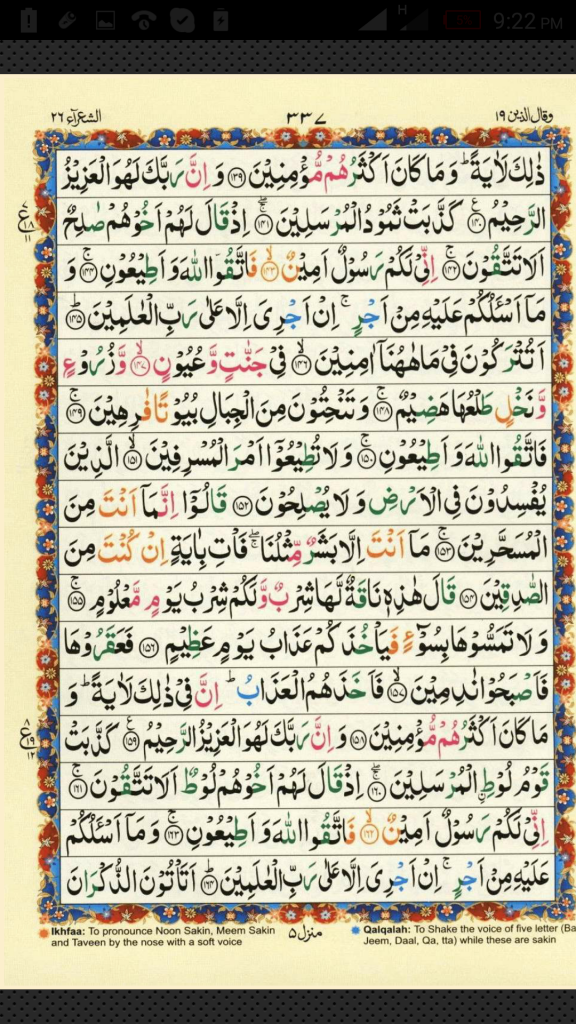 H 9:22 PM
وقال الذين ١٩ ٣٣٧ الشعراء ٢٦
ذٰلِكَ لَاٰيَةً ؕ وَمَا كَانَ اَكْثَرُهُمْ مُّؤْمِنِيْنَ ﴿۱۳۹﴾ وَاِنَّ رَبَّكَ لَهُوَ الْعَزِيْزُ
الرَّحِيْمُ ﴿۱۴۰﴾ كَذَّبَتْ ثَمُوْدُ الْمُرْسَلِيْنَ ﴿۱۴۱﴾ اِذْ قَالَ لَهُمْ اَخُوْهُمْ صٰلِحٌ
اَلَا تَتَّقُوْنَ ﴿۱۴۲﴾ اِنِّيْ لَكُمْ رَسُوْلٌ اَمِيْنٌ ﴿۱۴۳﴾ فَاتَّقُوا اللّٰهَ وَاَطِيْعُوْنِ ﴿۱۴۴﴾ وَ
مَاۤ اَسْـَٔلُكُمْ عَلَيْهِ مِنْ اَجْرٍ ۚ اِنْ اَجْرِيَ اِلَّا عَلٰى رَبِّ الْعٰلَمِيْنَ ﴿۱۴۵﴾
اَتُتْرَكُوْنَ فِيْ مَا هٰهُنَاۤ اٰمِنِيْنَ ﴿۱۴۶﴾ فِيْ جَنّٰتٍ وَّعُيُوْنٍ ﴿۱۴۷﴾ وَّزُرُوْعٍ
وَّنَخْلٍ طَلْعُهَا هَضِيْمٌ ﴿۱۴۸﴾ وَتَنْحِتُوْنَ مِنَ الْجِبَالِ بُيُوْتًا فٰرِهِيْنَ ﴿۱۴۹﴾
فَاتَّقُوا اللّٰهَ وَاَطِيْعُوْنِ ﴿۱۵۰﴾ وَلَا تُطِيْعُوْۤا اَمْرَ الْمُسْرِفِيْنَ ﴿۱۵۱﴾ الَّذِيْنَ
يُفْسِدُوْنَ فِي الْاَرْضِ وَلَا يُصْلِحُوْنَ ﴿۱۵۲﴾ قَالُوْۤا اِنَّمَاۤ اَنْتَ مِنَ
الْمُسَحَّرِيْنَ ﴿۱۵۳﴾ مَاۤ اَنْتَ اِلَّا بَشَرٌ مِّثْلُنَا ۖ فَاْتِ بِاٰيَةٍ اِنْ كُنْتَ مِنَ
الصّٰدِقِيْنَ ﴿۱۵۴﴾ قَالَ هٰذِهٖ نَاقَةٌ لَّهَا شِرْبٌ وَّلَكُمْ شِرْبُ يَوْمٍ مَّعْلُوْمٍ ﴿۱۵۵﴾
وَلَا تَمَسُّوْهَا بِسُوْٓءٍ فَيَاْخُذَكُمْ عَذَابُ يَوْمٍ عَظِيْمٍ ﴿۱۵۶﴾ فَعَقَرُوْهَا
فَاَصْبَحُوْا نٰدِمِيْنَ ﴿۱۵۷﴾ فَاَخَذَهُمُ الْعَذَابُ ؕ اِنَّ فِيْ ذٰلِكَ لَاٰيَةً ؕ وَ
مَا كَانَ اَكْثَرُهُمْ مُّؤْمِنِيْنَ ﴿۱۵۸﴾ وَاِنَّ رَبَّكَ لَهُوَ الْعَزِيْزُ الرَّحِيْمُ ﴿۱۵۹﴾ كَذَّبَتْ
قَوْمُ لُوْطِ ِۨالْمُرْسَلِيْنَ ﴿۱۶۰﴾ اِذْ قَالَ لَهُمْ اَخُوْهُمْ لُوْطٌ اَلَا تَتَّقُوْنَ ﴿۱۶۱﴾
اِنِّيْ لَكُمْ رَسُوْلٌ اَمِيْنٌ ﴿۱۶۲﴾ فَاتَّقُوا اللّٰهَ وَاَطِيْعُوْنِ ﴿۱۶۳﴾ وَمَاۤ اَسْـَٔلُكُمْ
عَلَيْهِ مِنْ اَجْرٍ ۚ اِنْ اَجْرِيَ اِلَّا عَلٰى رَبِّ الْعٰلَمِيْنَ ﴿۱۶۴﴾ اَتَاْتُوْنَ الذُّكْرَانَ
منزل ۵
Ikhfaa: To pronounce Noon Sakin, Meem Sakin
and Taveen by the nose with a soft voice
Qalqalah: To Shake the voice of five letter (Ba
Jeem, Daal, Qa, tta) while these are sakin